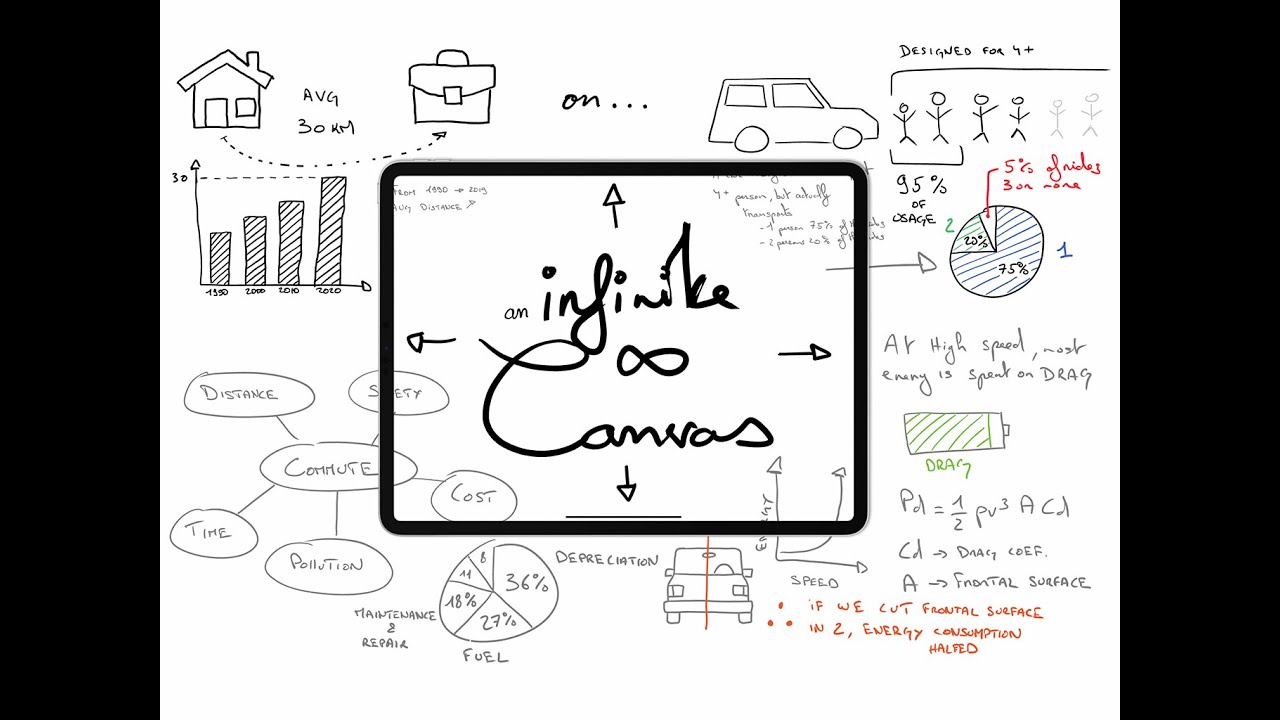 DESIGNED FOR 4+
AVG
30 KM
on...
30
1990 2000 2010 2020
FROM 1990 → 2019
AVG DISTANCE ↗
4+ person, but actually
transports
- 1 person 75% of
- 2 persons 20% of
95%
OF
USAGE
5% of rides
3 or more
2
20%
75%
1
an infinite
∞
Canvas
At High speed, most
energy is spent on DRAG
DRAG
Pd = 1/2 ρv³ A Cd
Cd → DRAG COEF.
A → FRONTAL SURFACE
DISTANCE
SAFETY
COMMUTE
COST
TIME
POLLUTION
8
11
18%
27%
36%
DEPRECIATION
MAINTENANCE
&
REPAIR
FUEL
ENERGY
SPEED
∴ IF WE CUT FRONTAL SURFACE
IN 2, ENERGY CONSUMPTION
HALFED